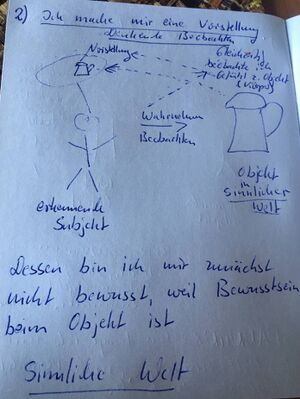 2) Ich mache mir eine Vorstellung
Denkende Beobachten
Vorstellung
Gleichzeitig
beobachte ich
Gefühl z. Objekt
Wahrnehmen
Beobachten
Objekt
in
sinnlicher
Welt
erkennende
Subjekt
Dessen bin ich mir zunächst
nicht bewusst, weil Bewusstsein
beim Objekt ist
Sinnliche Welt